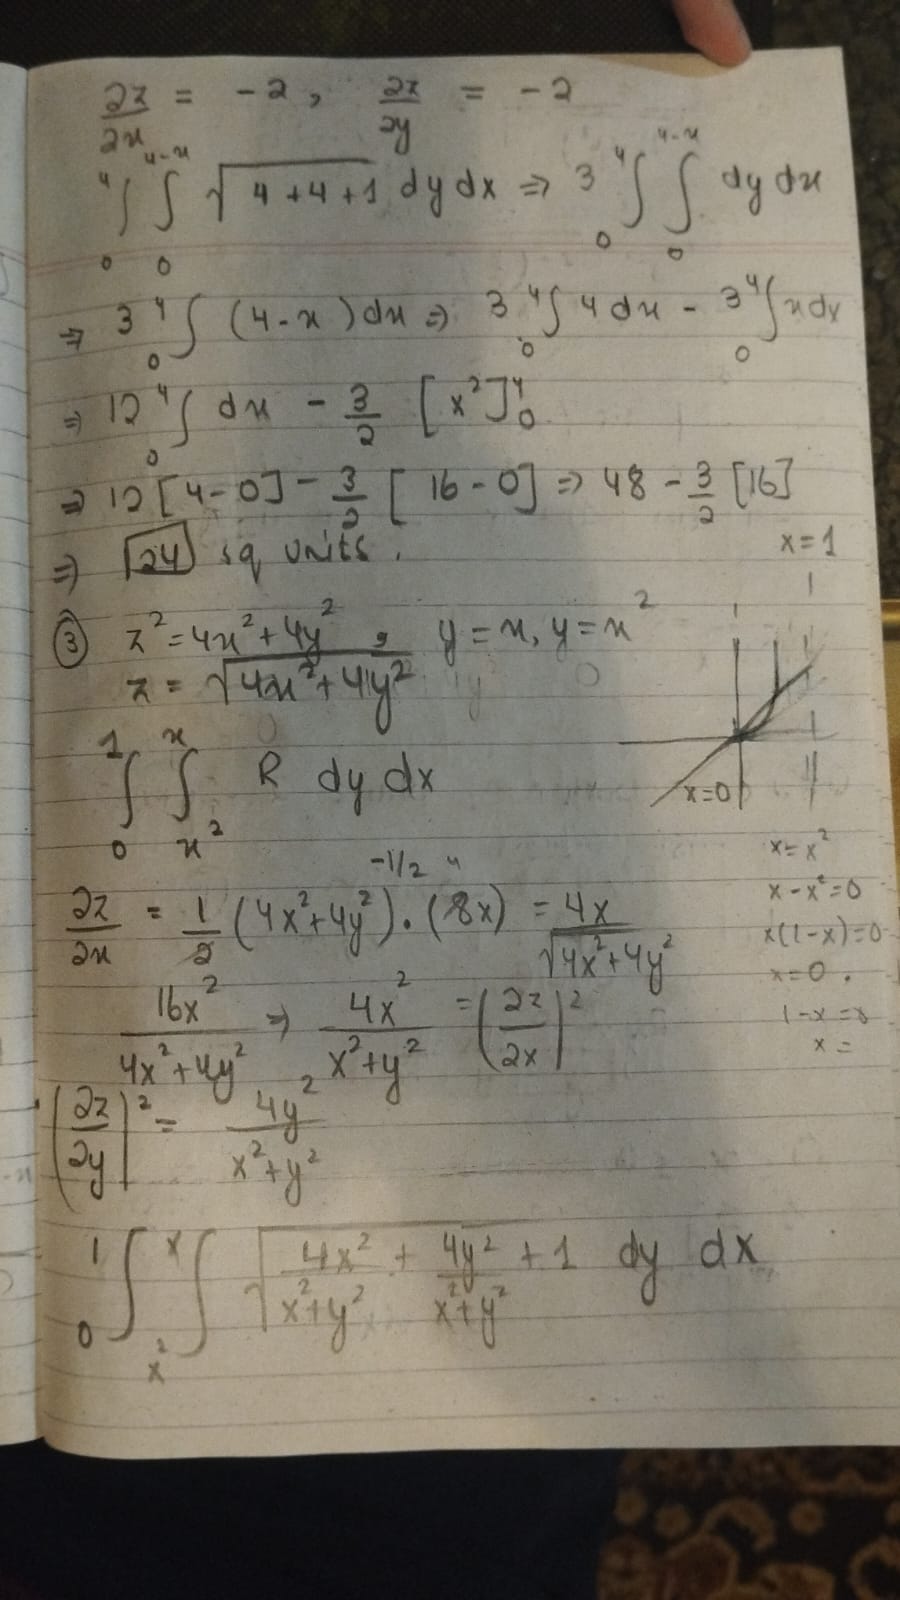 ∂z/∂x = -2, ∂z/∂y = -2
⁴∫₀ ⁴⁻ˣ∫₀ √(4+4+1) dy dx ⇒ 3 ⁴∫₀ ⁴⁻ˣ∫₀ dy dx
⇒ 3 ⁴∫₀ (4-x) dx ⇒ 3 ⁴∫₀ 4 dx - 3 ⁴∫₀ x dx
⇒ 12 ⁴∫₀ dx - 3/2 [x²]⁴₀
⇒ 12 [4-0] - 3/2 [16-0] ⇒ 48 - 3/2 [16]
⇒ 24 sq units.
x=1
③ z² = 4x² + 4y², y = x, y = x²
z = √(4x² + 4y²)
x=0
¹∫₀ ˣ∫ₓ² R dy dx
x = x²
x - x² = 0
x(1-x) = 0
x = 0.
x =
∂z/∂x = 1/2 (4x²+4y²)^(-1/2) · (8x) = 4x/√(4x²+4y²)
16x²/(4x²+4y²) ⇒ 4x²/(x²+y²) = (∂z/∂x)²
(∂z/∂y)² = 4y²/(x²+y²)
¹∫₀ ˣ∫ₓ² √(4x²/(x²+y²) + 4y²/(x²+y²) + 1) dy dx